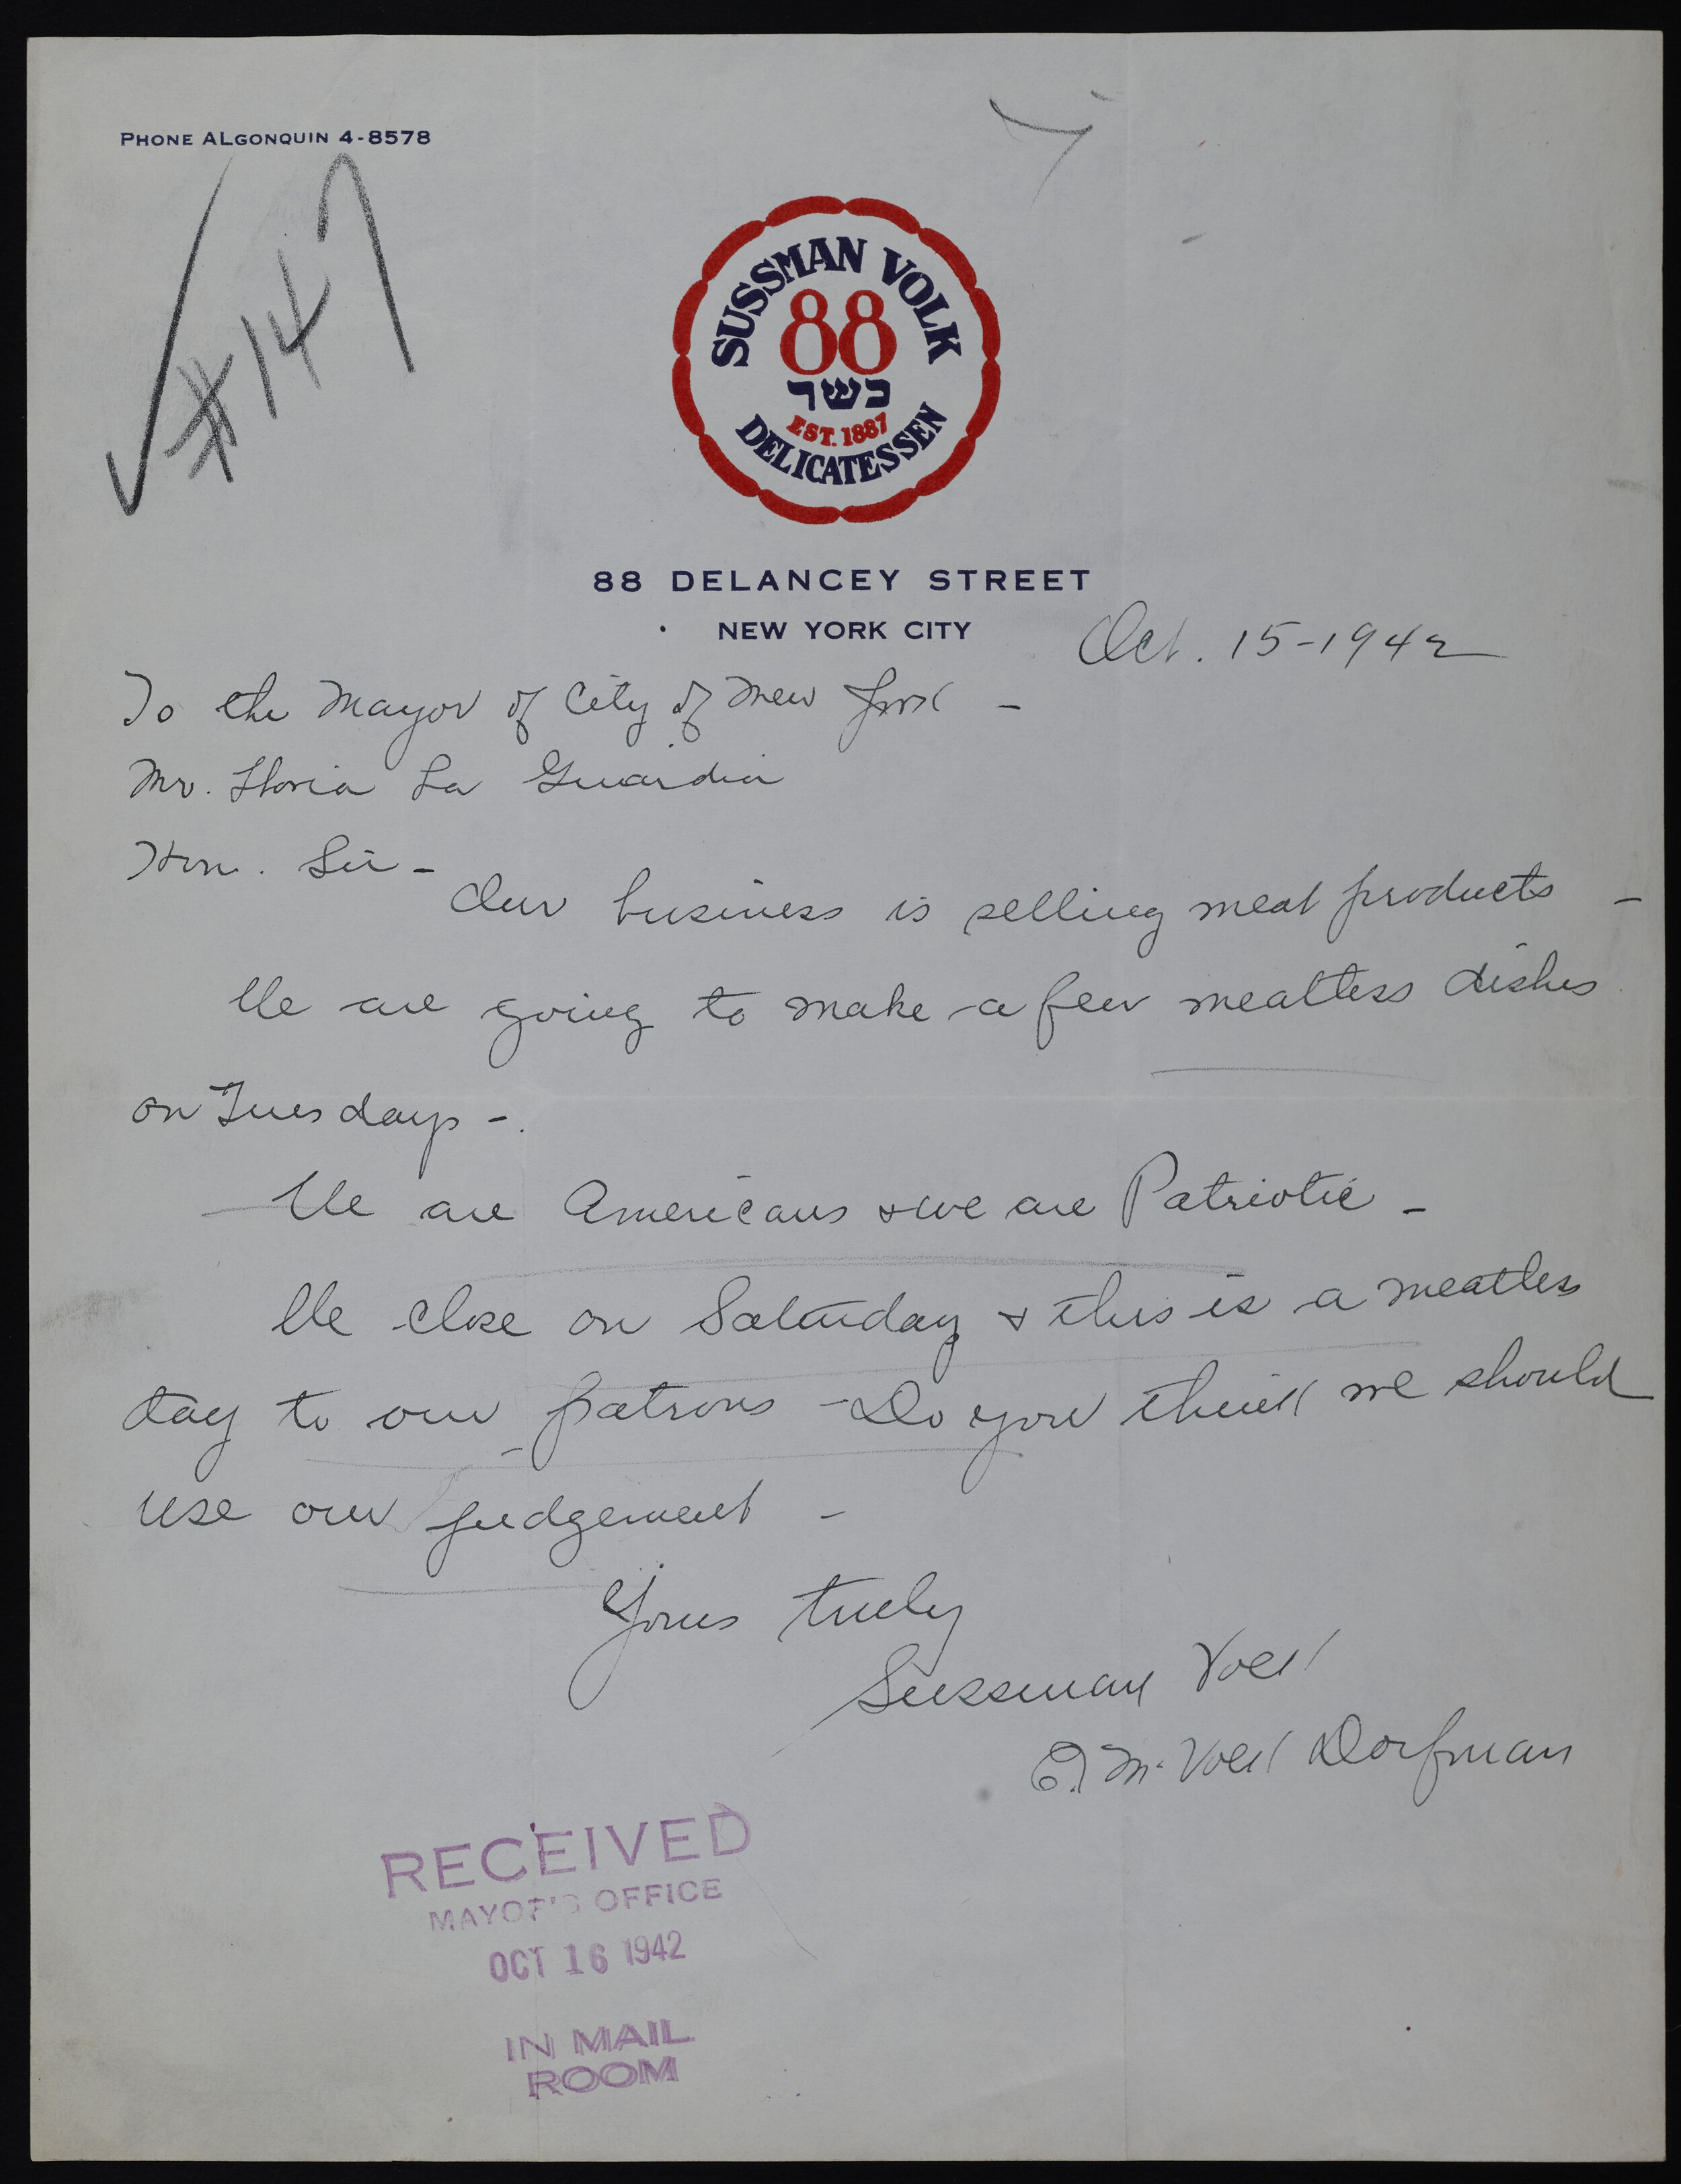 PHONE ALGONQUIN 4-8578
√ #147
SUSSMAN VOLK
88
כשר
EST. 1887
DELICATESSEN
88 DELANCEY STREET
NEW YORK CITY
Oct. 15-1942
To the Mayor of City of New York -
Mr. Floria La Guardia
Hon. Sir -
Our business is selling meat products -
We are going to make a few meatless dishes
on Tuesdays -.
We are Americans & we are Patriotic -
We close on Saturday & this is a meatless
day to our patrons - Do you think we should
use our judgement -
Yours truly
Sussman Volk
E. M. Volk Dorfman
RECEIVED
MAYOR'S OFFICE
OCT 16 1942
IN MAIL
ROOM